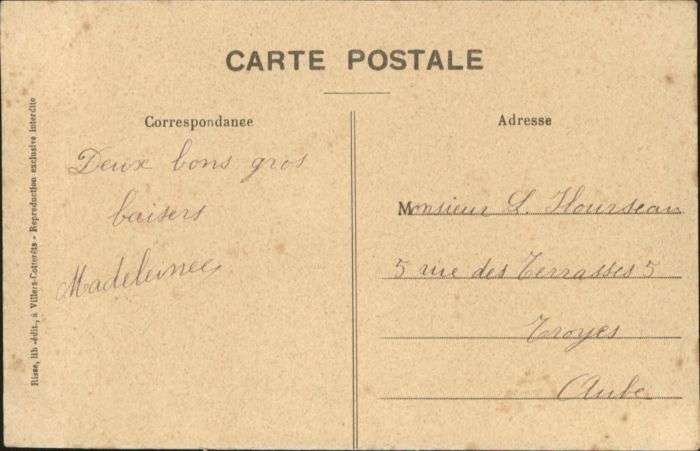 CARTE POSTALE
Correspondance
Deux bons gros
baisers
Madeleinee
Adresse
Monsieur L. Hourseau
5 rue des Terrasses 5
Troyes
Aube
Risse, lib.-édit., à Villers-Cotterêts - Reproduction exclusive interdite